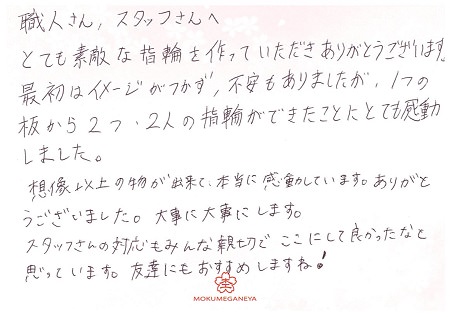 職人さん，スタッフさんへ
とても素敵な指輪を作っていただきありがとうございます。
最初はイメージがつかず，不安もありましたが，1つの
板から2つ・2人の指輪ができたことにとても感動
しました。
想像以上の物が出来て、本当に感動しています。ありがと
うございました。大事に大事にします。
スタッフさんの対応もみんな親切で ここにして良かったなと
思っています。友達にもおすすめしますね！
MOKUMEGANEYA